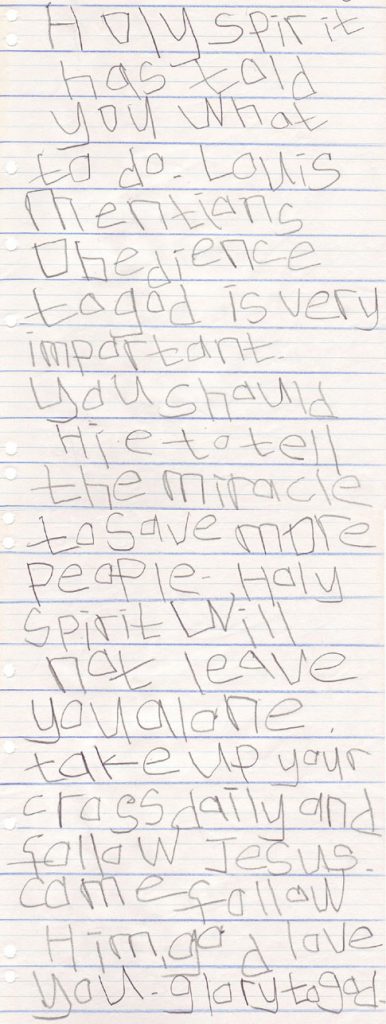 Holy spirit
has told
you what
to do. Louis
mentians
Obedience
to god is very
important.
you should
Hie to tell
the miracle
to save more
people. Holy
spirit Will
not leave
you alone.
take up your
cross daily and
follow Jesus.
come follow
Him, god love
you. glory to god.